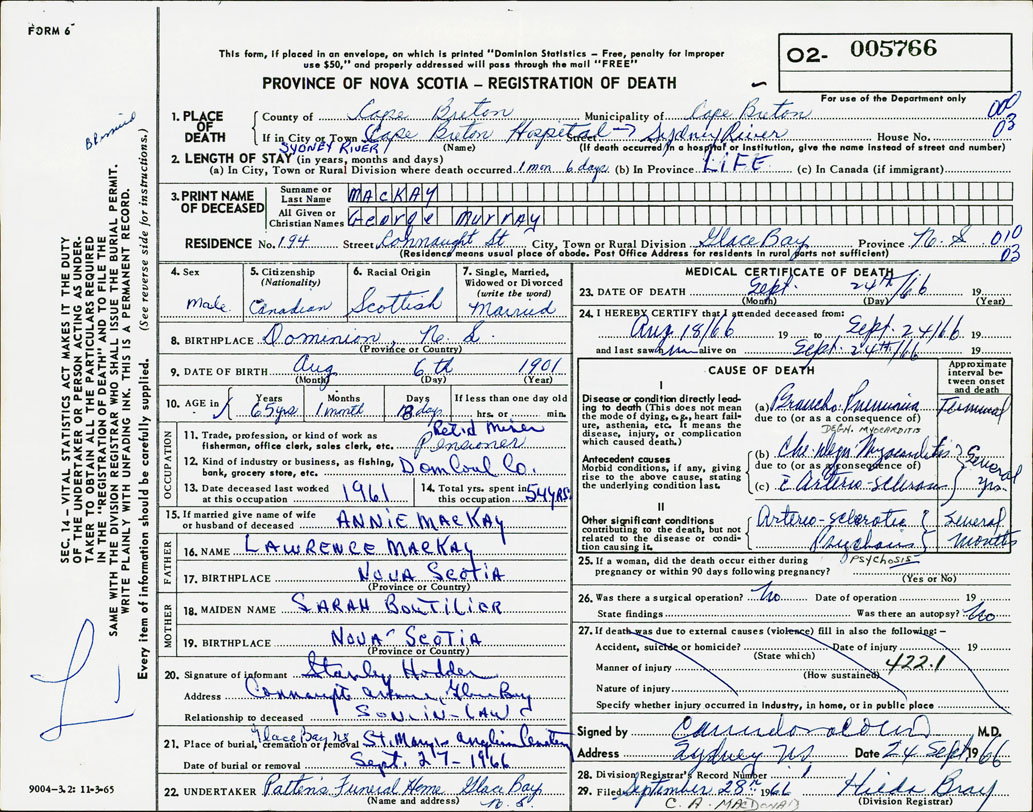 FORM 6
This form, if placed in an envelope, on which is printed "Dominion Statistics — Free, penalty for improper
use $50," and properly addressed will pass through the mail "FREE"
PROVINCE OF NOVA SCOTIA – REGISTRATION OF DEATH
O2- 005766
For use of the Department only
1. PLACE OF DEATH County of Cape Breton Municipality of Cape Breton 000
If in City or Town Cape Breton Hospital → Street Sydney River House No. 03
SYDNEY RIVER (Name) (If death occurred in a hospital or institution, give the name instead of street and number)
2. LENGTH OF STAY (in years, months and days)
(a) In City, Town or Rural Division where death occurred 1 mon 6 days (b) In Province LIFE (c) In Canada (if immigrant)
3. PRINT NAME OF DECEASED
Surname or Last Name MACKAY
All Given or Christian Names George Murray
RESIDENCE No. 194 Street Connaught St City, Town or Rural Division Glace Bay Province N. S 010
(Residence means usual place of abode. Post Office Address for residents in rural parts not sufficient) 03
4. Sex Male
5. Citizenship (Nationality) Canadian
6. Racial Origin Scottish
7. Single, Married, Widowed or Divorced (write the word) Married
8. BIRTHPLACE Dominion, N. S.
(Province or Country)
9. DATE OF BIRTH Aug 6th 1901
(Month) (Day) (Year)
10. AGE in Years Months Days If less than one day old
65 yrs 1 month 18 days hrs. or min.
OCCUPATION
11. Trade, profession, or kind of work as fisherman, office clerk, sales clerk, etc. Ret'd Miner Pensioner
12. Kind of industry or business, as fishing, bank, grocery store, etc. Dom Coal Co.
13. Date deceased last worked at this occupation 1961
14. Total yrs. spent in this occupation 54 YRS
15. If married give name of wife or husband of deceased ANNIE MACKAY
FATHER
16. NAME LAWRENCE MACKAY
17. BIRTHPLACE NOVA SCOTIA
(Province or Country)
MOTHER
18. MAIDEN NAME SARAH BOUTILIER
19. BIRTHPLACE NOVA SCOTIA
(Province or Country)
20. Signature of informant Stanley Hodder
Address Connaught Avenue, Glace Bay
Relationship to deceased SON-IN-LAW
21. Place of burial, cremation or removal Glace Bay NS St. Mary's Anglican Cemetery
Date of burial or removal Sept. 27-1966
22. UNDERTAKER Patten's Funeral Home Glace Bay N. S.
(Name and address)
MEDICAL CERTIFICATE OF DEATH
23. DATE OF DEATH Sept. 24th/66 19
(Month) (Day) (Year)
24. I HEREBY CERTIFY that I attended deceased from:
Aug 18/66 19 to Sept. 24/66 19
and last saw him alive on Sept. 24th/66 19
CAUSE OF DEATH
Approximate interval between onset and death
I
Disease or condition directly leading to death (This does not mean the mode of dying, e.g., heart failure, asthenia, etc. It means the disease, injury, or complication which caused death.)
(a) Broncho-Pneumonia Terminal
due to (or as a consequence of)
DEGN. MYOCARDITIS
Antecedent causes
Morbid conditions, if any, giving rise to the above cause, stating the underlying condition last.
(b) Chr. Degn Myocarditis Several yrs.
due to (or as a consequence of)
(c) c Arterio-sclerosis
II
Other significant conditions contributing to the death, but not related to the disease or condition causing it.
Arterio-sclerotic Psychosis Several months
PSYCHOSIS
25. If a woman, did the death occur either during pregnancy or within 90 days following pregnancy?
(Yes or No)
26. Was there a surgical operation? No Date of operation 19
State findings Was there an autopsy? No
27. If death was due to external causes (violence) fill in also the following:–
Accident, suicide or homicide? Date of injury 19
(State which)
Manner of injury 422.1
(How sustained)
Nature of injury
Specify whether injury occurred in industry, in home, or in public place
Signed by M.D.
Address Sydney NS Date 24 Sept 1966
28. Division Registrar's Record Number 1
29. Filed September 28th 1966 Hilda Bray
C. A. MACDONALD (Division Registrar)
SEC. 14 – VITAL STATISTICS ACT MAKES IT THE DUTY
OF THE UNDERTAKER OR PERSON ACTING AS UNDER-
TAKER TO OBTAIN ALL THE PARTICULARS REQUIRED
IN THE "REGISTRATION OF DEATH" AND TO FILE THE
SAME WITH THE DIVISION REGISTRAR WHO SHALL ISSUE THE BURIAL PERMIT.
WRITE PLAINLY WITH UNFADING INK. THIS IS A PERMANENT RECORD.
Every item of information should be carefully supplied. (See reverse side for instructions.)
9004–3.2: 11-3-65